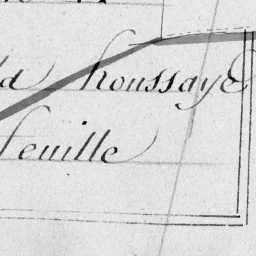 la houssaye
feuille